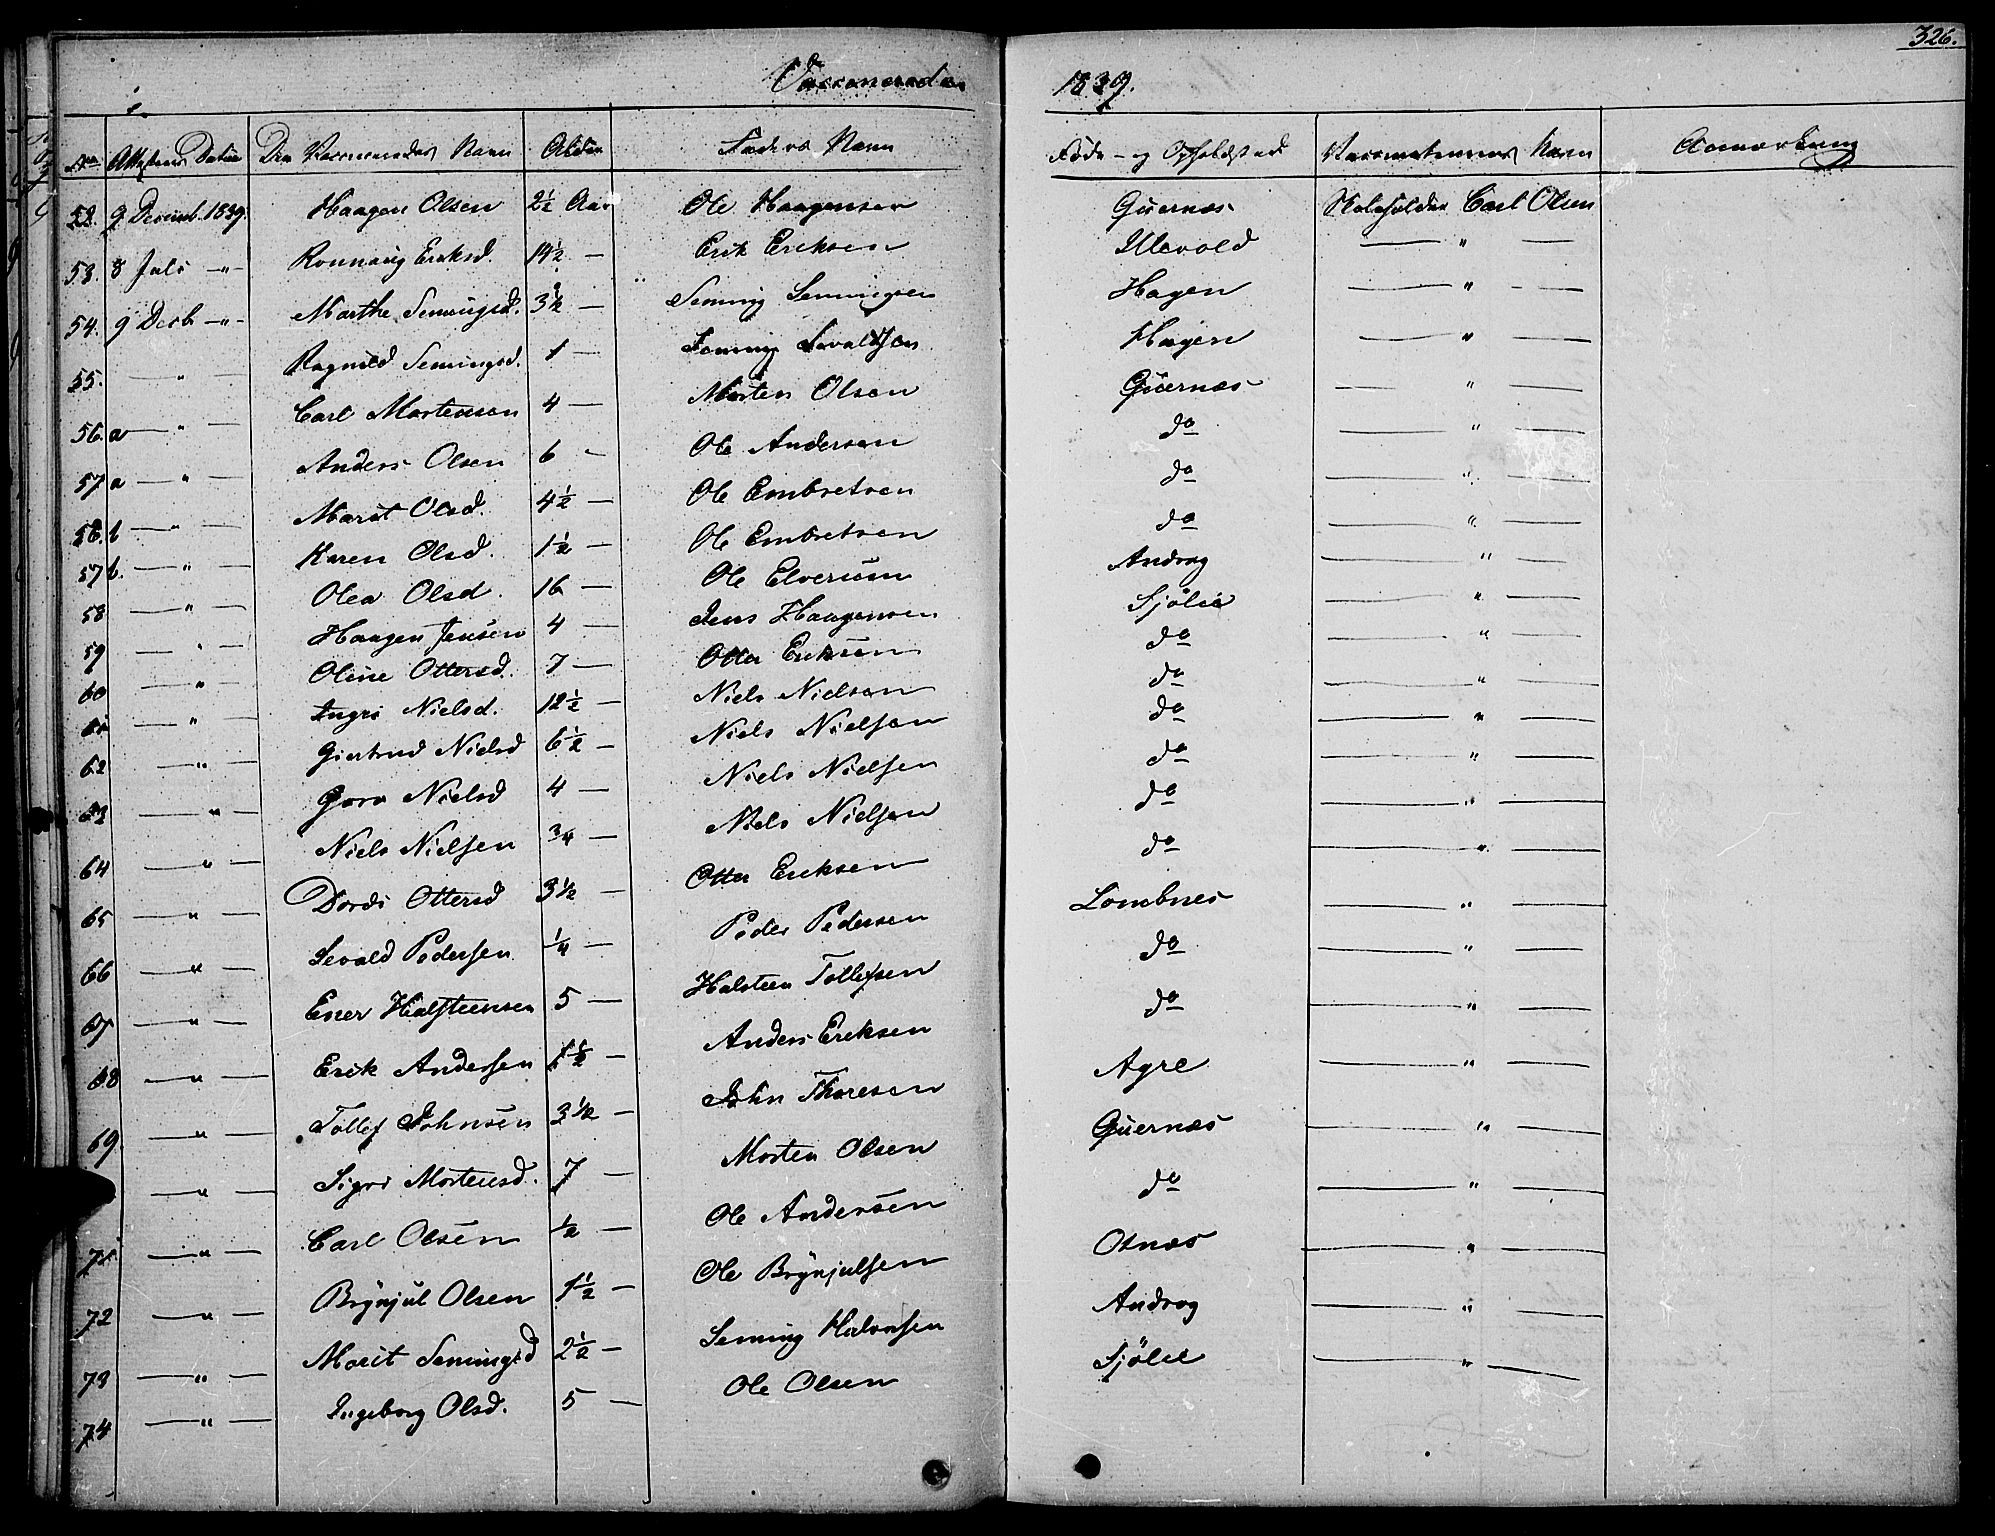 326.
Vaccinerede 1839.
No. Attestens Datum Den Vaccineredes Navn Alder Faders Navn Føde- og Opholdsted Vaccinateurens Navn Anmærkning
52. 9 Decemb. 1839. Haagen Olsen 2½ Aar Ole Haagensen Guernæs Skoleholder Carl Olsen
53. 8 Juli —"— Ronnaug Eriksd. 14½ — Erik Eriksen Ulevold — " —
54. 9 Decb —"— Marthe Semingsd. 3½ — Seming Semingsen Hagen — " —
55. — " — Ragnild Semingsd. 1 — Seming Sevaldsen Hagen — " —
56. a — " — Carl Mortensen 4 — Morten Olsen Guernæs — " —
57 a — " — Anders Olsen 6 — Ole Andersen do — " —
56. b — " — Marit Olsd. 4½ — Ole Embretsen do — " —
57 b. — " — Karen Olsd. 1½ — Ole Embretsen do — " —
58 — " — Olea Olsd. 16 — Ole Elverum Andrag — " —
59 — " — Haagen Jensen 4 — Jens Haagensen Sjölie — " —
60 — " — Oline Ottersd. 7 — Otter Eriksen do — " —
61 — " — Ingri Nielsd. 12½ — Niels Nielsen do — " —
62 — " — Giertrud Nielsd 6½ — Niels Nielsen do — " —
63 — " — Goro Nielsd 4 — Niels Nielsen do — " —
64 — " — Niels Nielsen ¾ — Niels Nielsen do — " —
65 — " — Dordi Ottersd 3½ — Otter Eriksen do — " —
66 — " — Sevald Pedersen ¼ — Peder Pedersen Lombnes — " —
67 — " — Ener Halsteensen 5 — Halsteen Tollefsen do — " —
68 — " — Erik Andersen 1½ — Anders Eriksen do — " —
69. — " — Tollef Johnsen 3½ — John Thoresen Agre — " —
— " — Sigri Mortensd. 7 — Morten Olsen Guernæs — " —
71 — " — Carl Olsen ½ — Ole Andersen do — " —
72 — " — Brÿnjul Olsen 1½ — Ole Brÿnjulsen Otnæs — " —
73 — " — Marit Semingsd 2½ — Seming Halvorsen Andrag — " —
74 — " — Ingeborg Olsd. 5 — Ole Olsen Sjölie — " —